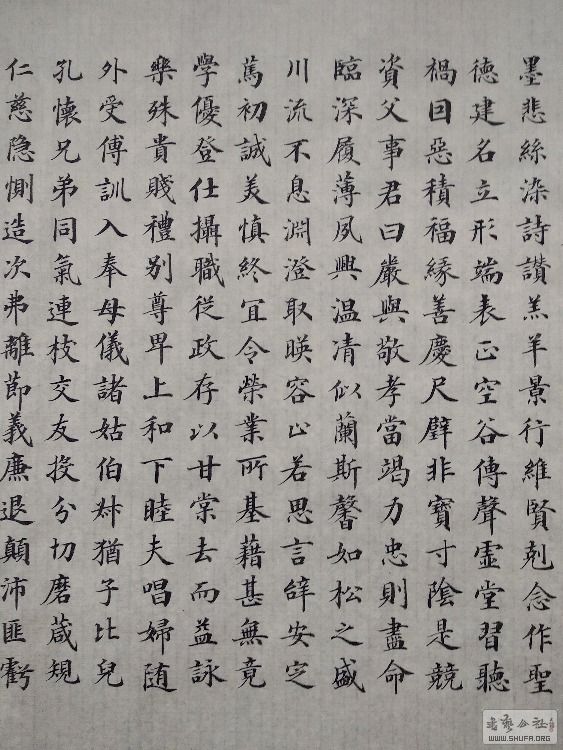 墨悲絲染詩讚羔羊景行維賢剋念作聖
德建名立形端表正空谷傳聲虛堂習聽
禍因惡積福緣善慶尺璧非寶寸陰是競
資父事君曰嚴與敬孝當竭力忠則盡命
臨深履薄夙興温凊似蘭斯馨如松之盛
川流不息淵澄取暎容止若思言辝安定
篤初誠美慎終宜令榮業所基藉甚無竟
學優登仕攝職從政存以甘棠去而益詠
樂殊貴賤禮别尊卑上和下睦夫唱婦随
外受傅訓入奉母儀諸姑伯叔猶子比兒
孔懷兄弟同氣連枝交友投分切磨葴規
仁慈隐惻造次弗離節義廉退顛沛匪虧
書藝公社
WWW.SHUFA.ORG